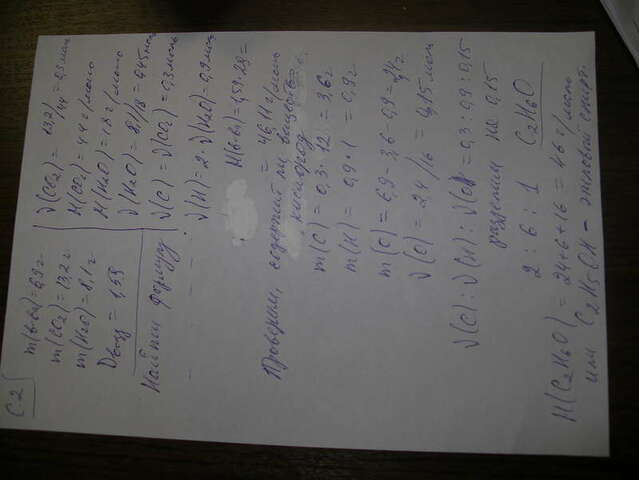 C2
m(в-ва)=6,9г
m(CO2)=13,2г
m(H2O)=8,1г
Dвозд = 1,59
Найти формулу
ν(CO2) = 13,2/44 = 0,3 моль
M(CO2) = 44 г/моль
M(H2O) = 18 г/моль
ν(H2O) = 8,1/18 = 0,45 моль
ν(C) = ν(CO2) = 0,3 моль
ν(H) = 2·ν(H2O) = 0,9 моль
M(в-ва)=1,59·29=
= 46,11 г/моль
Проверим, содержит ли вещество
кислород
m(C) = 0,3·12 = 3,6г
m(H) = 0,9·1 = 0,9г
m(O) = 6,9-3,6-0,9 = 2,4г
ν(O) = 2,4/16 = 0,15 моль
ν(C):ν(H):ν(O) = 0,3:0,9:0,15
разделим на 0,15
2 : 6 : 1 C2H6O
M(C2H6O) = 24+6+16 = 46 г/моль
или C2H5OH - этиловый спирт.